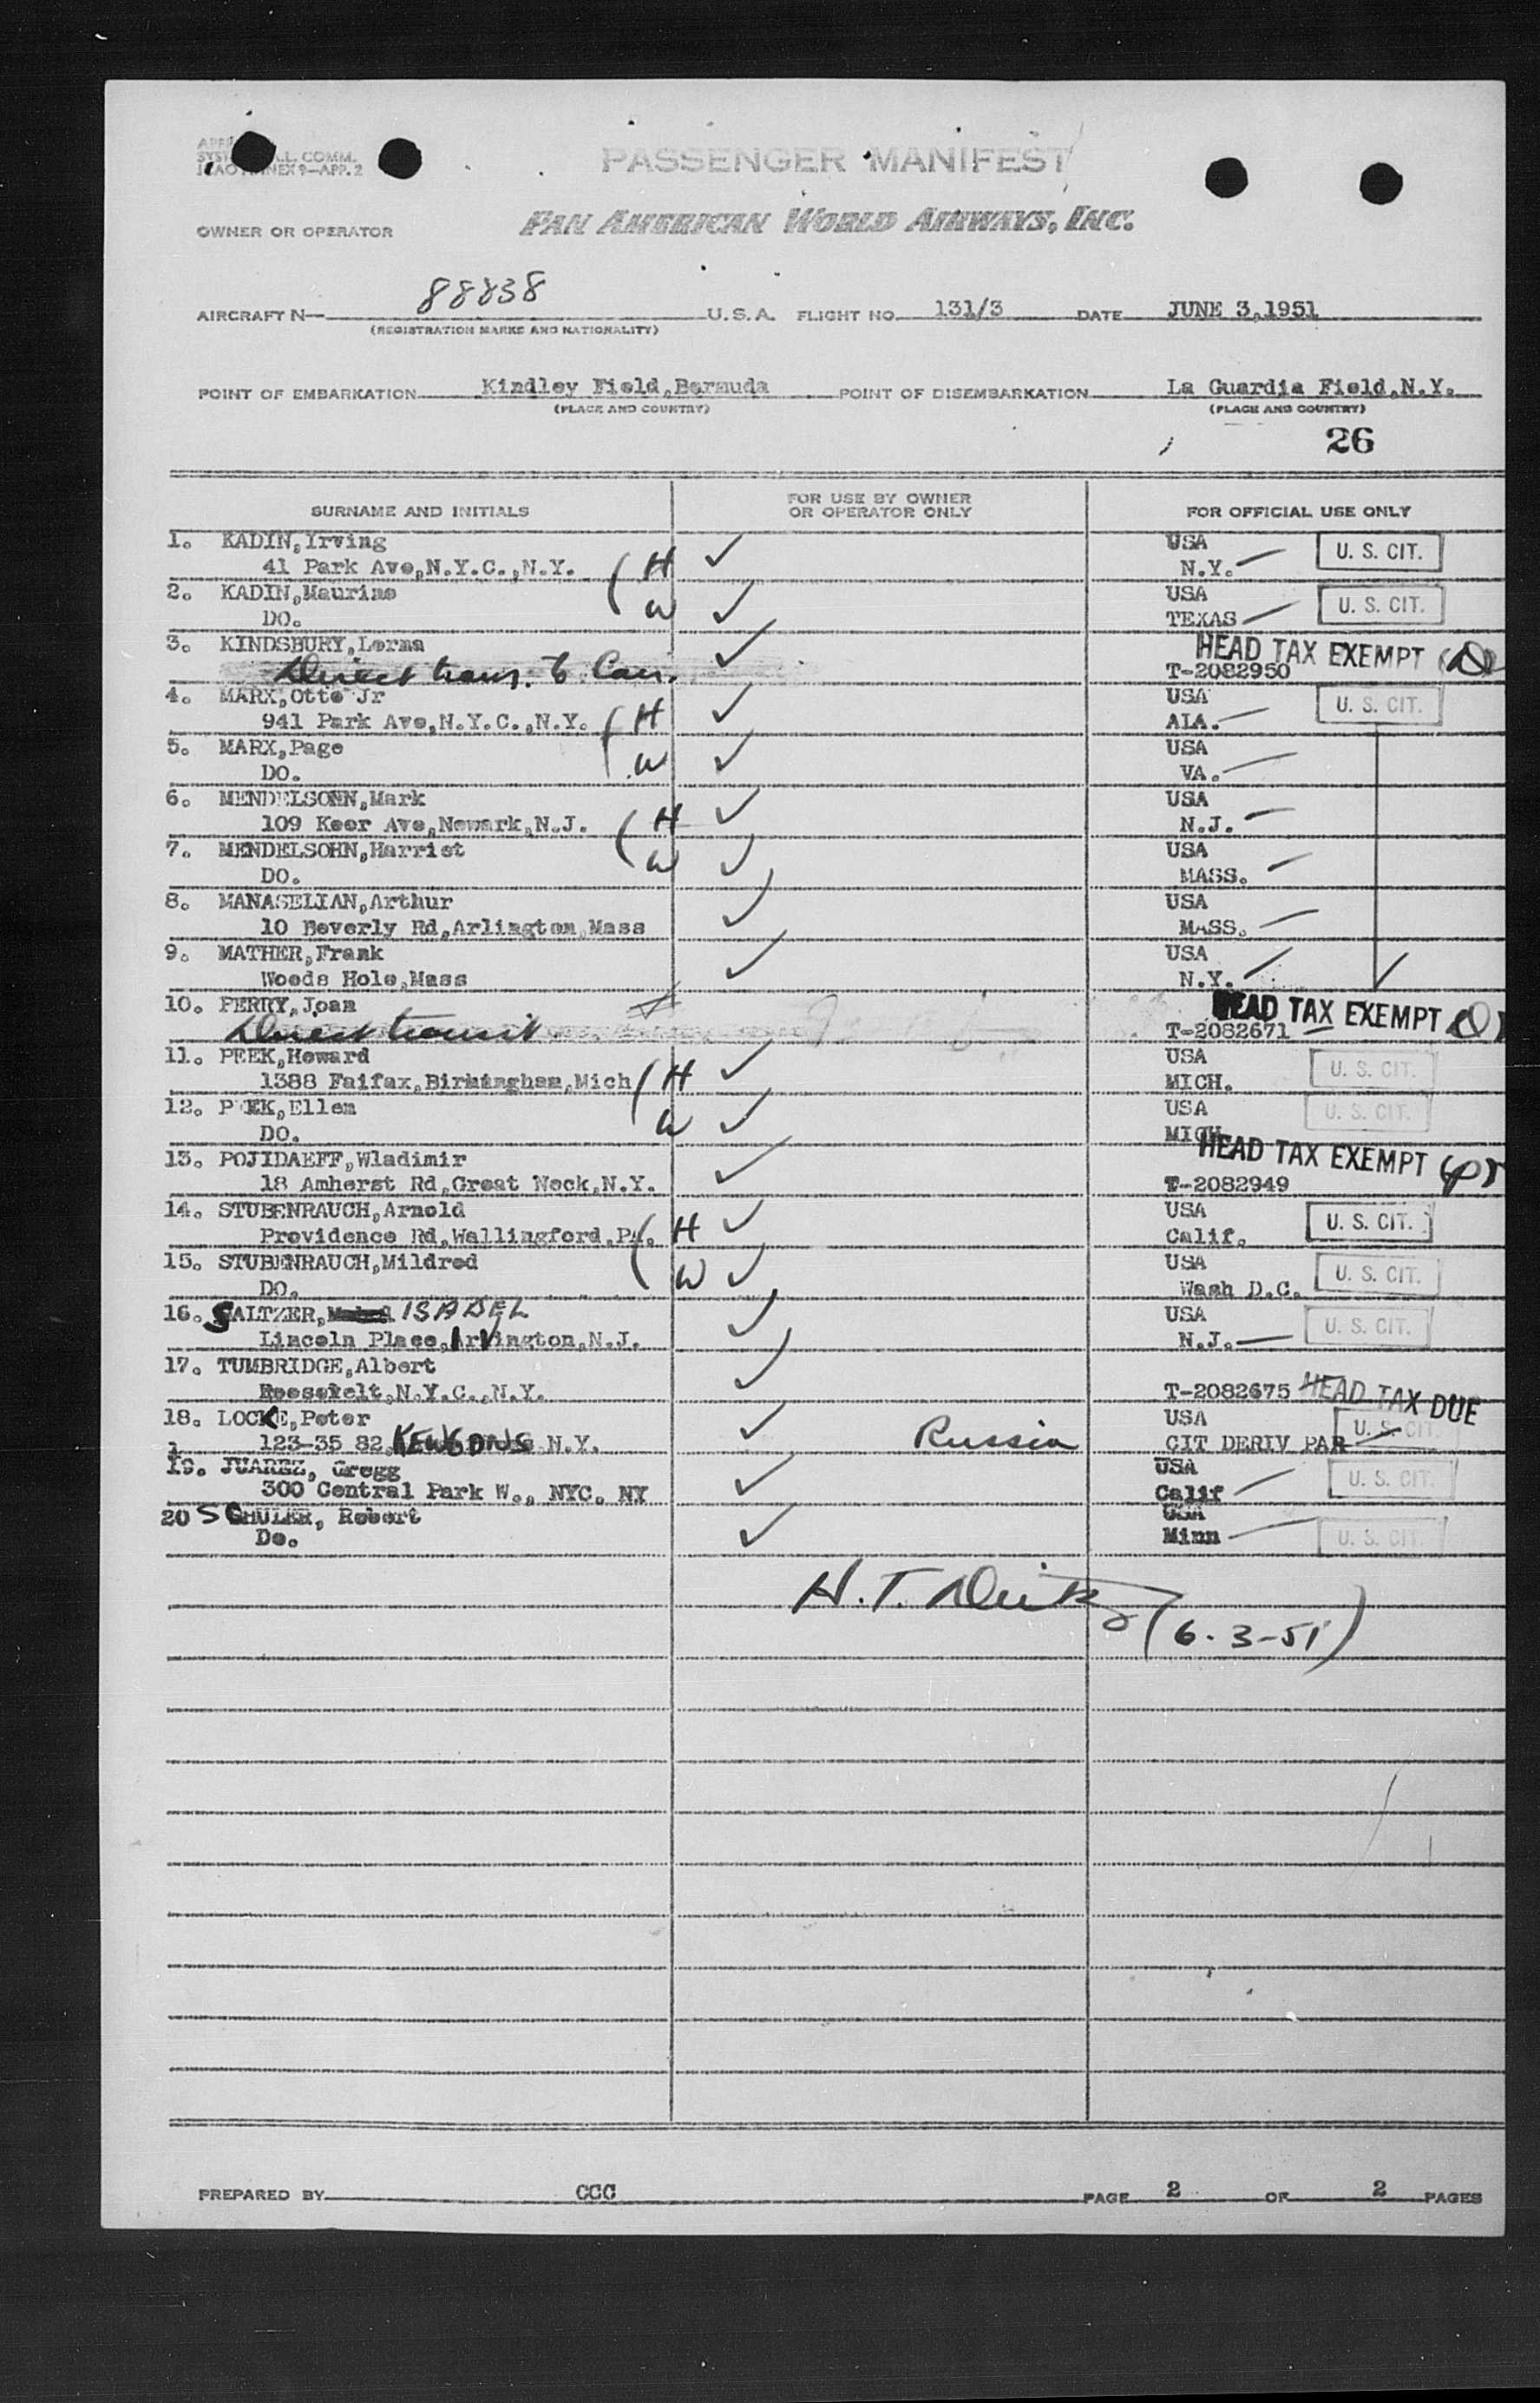 L. COMM.
NEX 9—APP. 2
PASSENGER MANIFEST
OWNER OR OPERATOR
PAN AMERICAN WORLD AIRWAYS, INC.
AIRCRAFT N— 88838 U.S.A. FLIGHT NO. 131/3 DATE JUNE 3,1951
(REGISTRATION MARKS AND NATIONALITY)
POINT OF EMBARKATION Kindley Field,Bermuda POINT OF DISEMBARKATION La Guardia Field,N.Y.
(PLACE AND COUNTRY) (PLACE AND COUNTRY)
26
SURNAME AND INITIALS FOR USE BY OWNER OR OPERATOR ONLY FOR OFFICIAL USE ONLY
1. KADIN,Irving USA U. S. CIT.
41 Park Ave,N.Y.C.,N.Y. ( H ✓ N.Y.
2. KADIN,Maurine USA U. S. CIT.
DO. W ✓ TEXAS
3. KINDSBURY,Lorna ✓ HEAD TAX EXEMPT
Direct trans. to Can. T-2082950
4. MARX,Otto Jr ✓ USA U. S. CIT.
941 Park Ave,N.Y.C.,N.Y. ( H ALA.
5. MARX,Page ✓ USA
DO. W VA.
6. MENDELSOHN,Mark ✓ USA
109 Keer Ave,Newark,N.J. ( H N.J.
7. MENDELSOHN,Harriet W ✓ USA
DO. MASS.
8. MANASELIAN,Arthur ✓ USA
10 Beverly Rd,Arlington,Mass MASS.
9. MATHER,Frank ✓ USA
Woods Hole,Mass N.Y. ✓
10. PERRY,Joan HEAD TAX EXEMPT
Direct transit T-2082671
11. PEEK,Howard ✓ USA U. S. CIT.
1388 Faifax,Birmingham,Mich ( H MICH.
12. PEEK,Ellen ✓ USA U. S. CIT.
DO. W MICH.
13. POJIDAEFF,Wladimir ✓ HEAD TAX EXEMPT
18 Amherst Rd,Great Neck,N.Y. T-2082949
14. STUBENRAUCH,Arnold ✓ USA U. S. CIT.
Providence Rd,Wallingford.PA. ( H Calif.
15. STUBENRAUCH,Mildred ✓ USA U. S. CIT.
DO. W Wash D.C.
16. SALTZER, ISABEL ✓ USA U. S. CIT.
Lincoln Place,Irvington,N.J. N.J.
17. TUMBRIDGE,Albert ✓
Roosevelt,N.Y.C.,N.Y. T-2082675 HEAD TAX DUE
18. LOCKE,Peter ✓ USA U. S. CIT.
123-35 82, KEW GDNS N.Y. Russia CIT DERIV PAR
19. JUAREZ, Gregg ✓ USA U. S. CIT.
300 Central Park W., NYC. NY Calif
20 SCHULER, Robert ✓ USA
Do. Minn U. S. CIT.
H. T.
(6-3-51)
PREPARED BY CCC PAGE 2 OF 2 PAGES